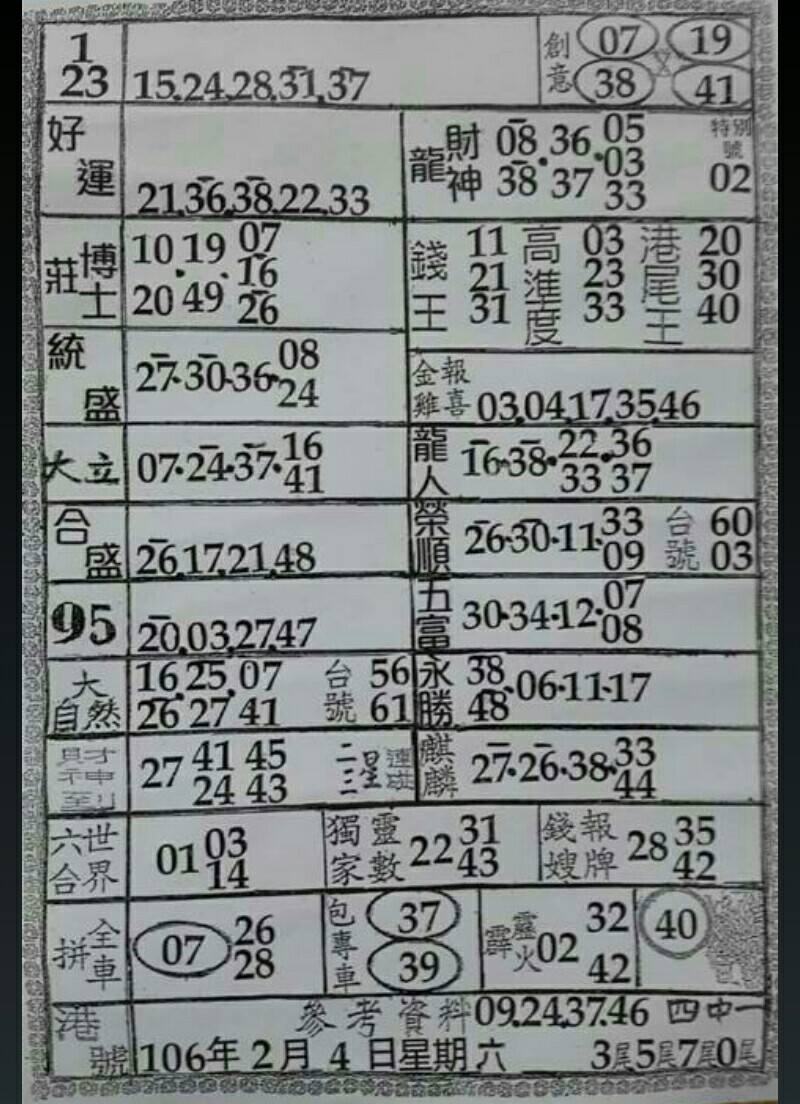 1
23
15.24.28.31.37
創意
07 19
38 41
好運
21.36.38.22.33
龍
財神
08 36 05
03
38 37 33
特別號
02
莊
博士
10 19 07
16
20 49 26
錢王
11
21
31
高準度
03
23
33
港尾王
20
30
40
統盛
27.30.36.08
24
金雞報喜
03.04.17.35.46
大立
07.24.37.16
41
龍人
16.38.22.36
33 37
合盛
26.17.21.48
榮順
26.30.11.33
09
台號
60
03
95
20.03.27.47
五富
30.34.12.07
08
大自然
16.25.07
26 27 41
台號
56
61
永勝
38
48
.06.11.17
財神到
27 41 45
24 43
二三星
連碰
麒麟
27.26.38.33
44
六合世界
01 03
14
獨家靈數
22 31
43
錢嫂報牌
28 35
42
拼全車
07 26
28
包專車
37
39
霹靂火
02 32
42
40
港號
參考資料09.24.37.46 四中一
106年2月4日星期六 3尾5尾7尾0尾